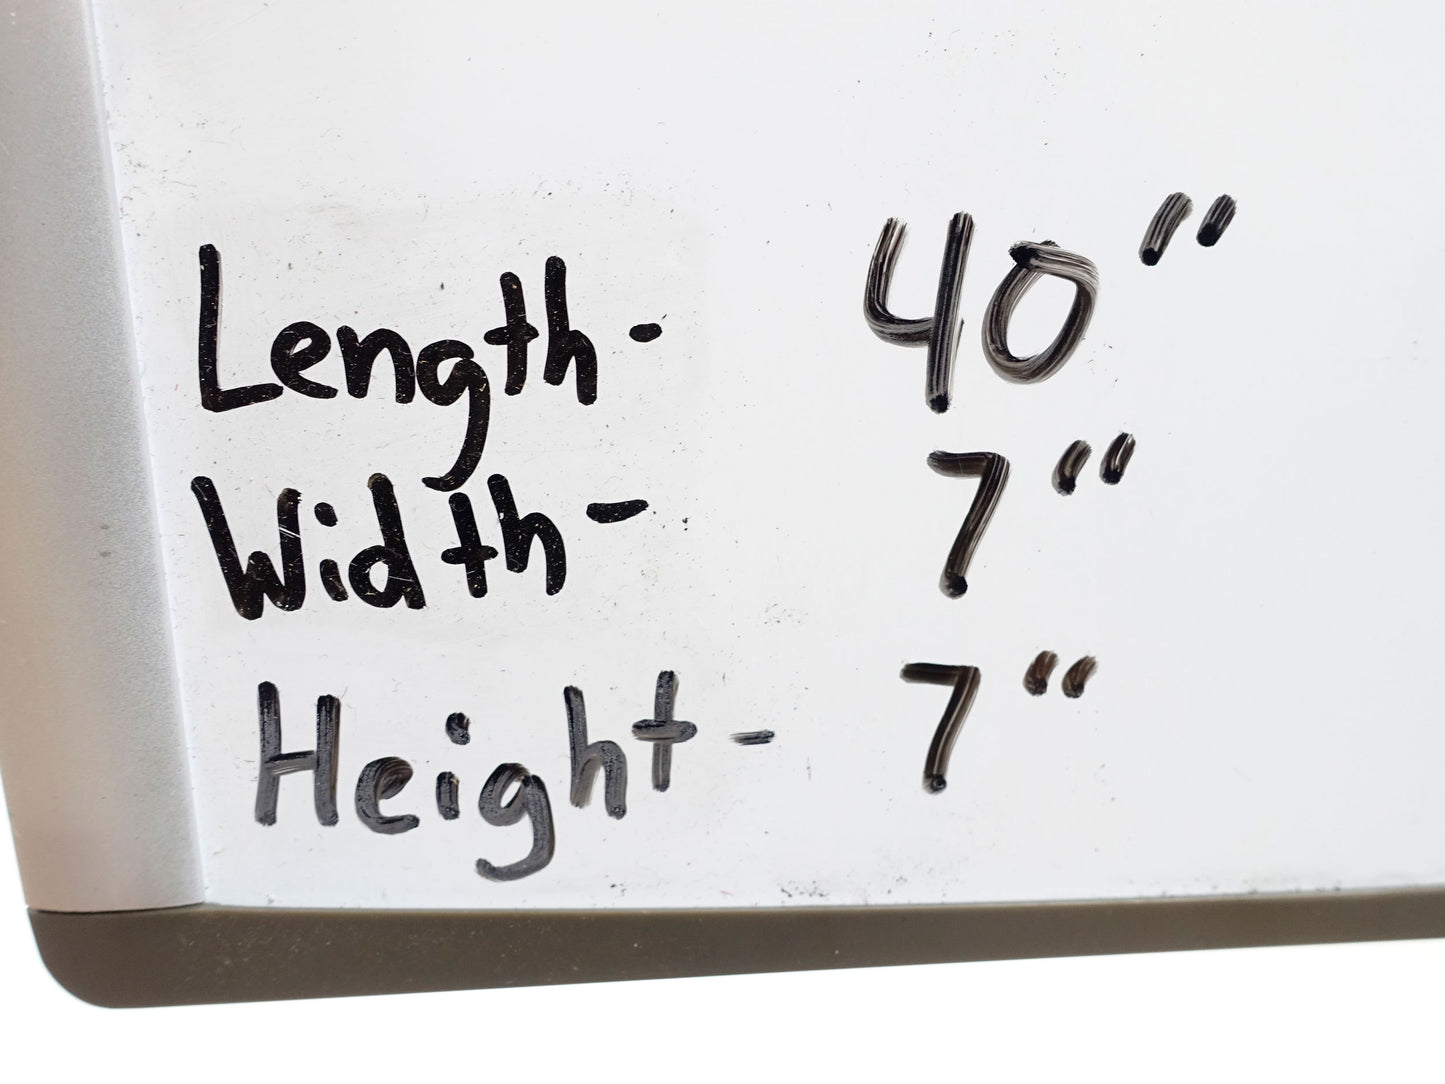 Length- 40"
Width- 7"
Height- 7"